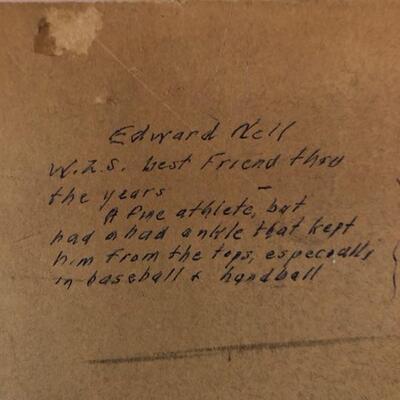 Edward Nell
W.Z.S. best Friend thru
the years —
A fine athlete, but
had a bad ankle that kept
him from the tops, especially
in baseball & handball